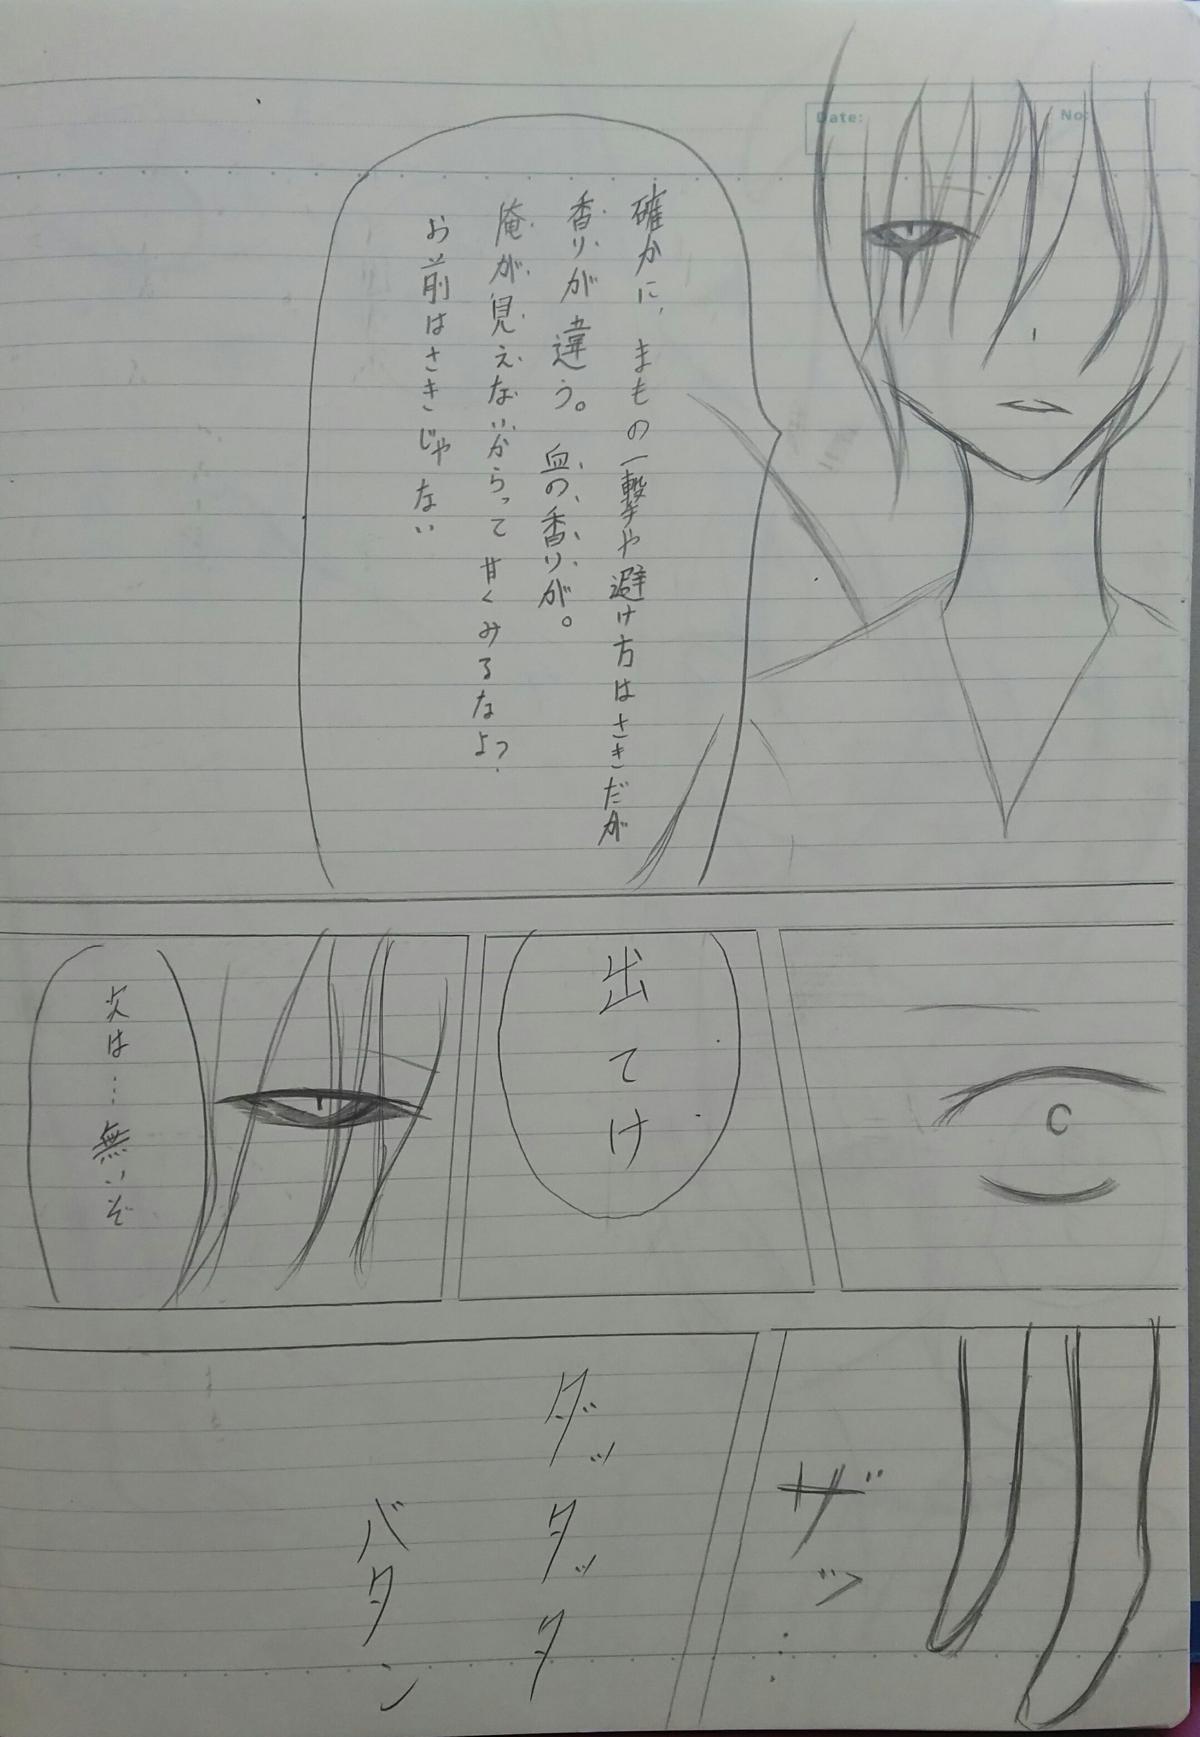 Date:
No:
確かに、まもの一撃や避け方はさきだが
香りが違う。血の香りが。
俺が見えないからって甘くみるなよっ
お前はさきじゃない
出てけ
次は…無いぞ
ザッ…
ダッタッタ
バタン